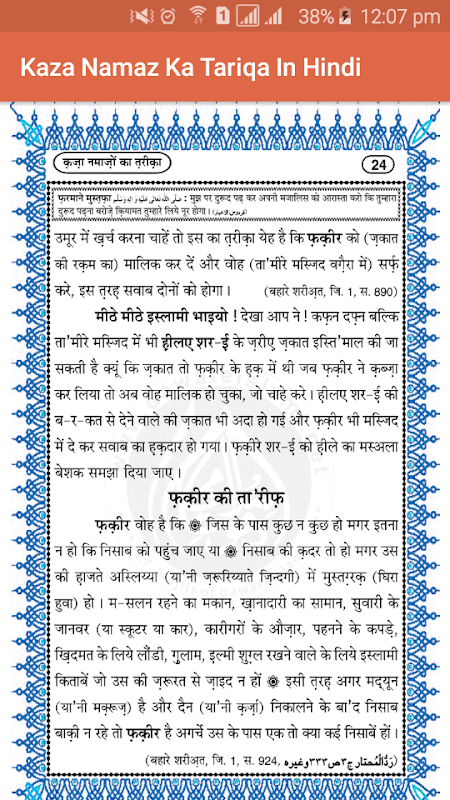 38% 12:07 pm
Kaza Namaz Ka Tariqa In Hindi
क़ज़ा नमाज़ों का त़रीक़ा
24
फ़रमाने मुस्त़फ़ा صَلَّى اللهُ تَعَالٰى عَلَيْهِ وَاٰلِهٖ وَسَلَّم : मुझ पर दुरूद पढ़ कर अपनी मजालिस को आरास्ता करो कि तुम्हारा
दुरूद पढ़ना बरोज़े क़ियामत तुम्हारे लिये नूर होगा । (فردوس الاخبار)
उमूर में ख़र्च करना चाहें तो इस का त़रीक़ा येह है कि फ़क़ीर को (ज़कात
की रक़म का) मालिक कर दें और वोह (ता'मीरे मस्जिद वग़ैरा में) सर्फ़
करे, इस त़रह़ सवाब दोनों को होगा । (बहारे शरीअ़त, जि. 1, स. 890)
मीठे मीठे इस्लामी भाइयो ! देखा आप ने ! कफ़न दफ़्न बल्कि
ता'मीरे मस्जिद में भी ह़ीलए शर-ई के ज़रीए ज़कात इस्ति'माल की जा
सकती है क्यूं कि ज़कात तो फ़क़ीर के ह़क़ में थी जब फ़क़ीर ने क़ब्ज़ा
कर लिया तो अब वोह मालिक हो चुका, जो चाहे करे । ह़ीलए शर-ई की
ब-र-कत से देने वाले की ज़कात भी अदा हो गई और फ़क़ीर भी मस्जिद
में दे कर सवाब का ह़क़दार हो गया । फ़क़ीरे शर-ई को ह़ीले का मस्अला
बेशक समझा दिया जाए ।
फ़क़ीर की ता'रीफ़
फ़क़ीर वोह है कि ۞ जिस के पास कुछ न कुछ हो मगर इतना
न हो कि निसाब को पहुंच जाए या ۞ निसाब की क़दर तो हो मगर उस
की ह़ाजते अस्लिय्या (या'नी ज़रूरिय्याते ज़िन्दगी) में मुस्तग़्रक़ (घिरा
हुवा) हो । म-सलन रहने का मकान, ख़ानादारी का सामान, सुवारी के
जानवर (या स्कूटर या कार), कारीगरों के औज़ार, पहनने के कपड़े,
ख़िदमत के लिये लौंडी, ग़ुलाम, इल्मी शुग़्ल रखने वाले के लिये इस्लामी
किताबें जो उस की ज़रूरत से ज़ाइद न हों ۞ इसी त़रह़ अगर मदयून
(या'नी मक़्रूज़) है और दैन (या'नी क़र्ज़ा) निकालने के बा'द निसाब
बाक़ी न रहे तो फ़क़ीर है अगर्चे उस के पास एक तो क्या कई निसाबें हों ।
(बहारे शरीअ़त, जि. 1, स. 924, رَدُّالْمُحتَار ج٣ص٣٣٣وغيره)